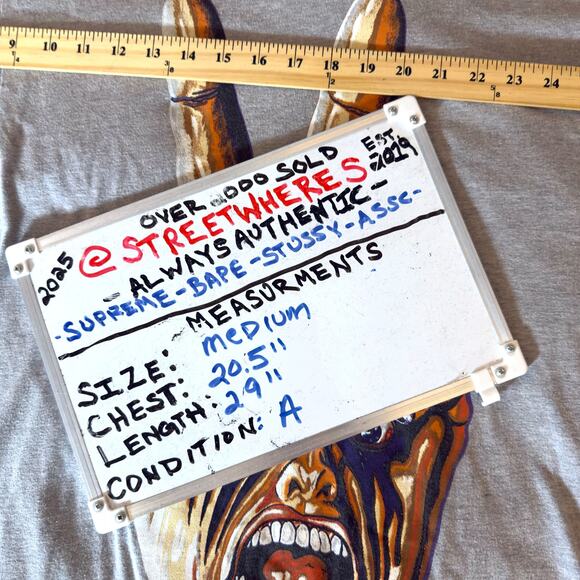 9 10 11 12 13 14 15 16 17 18 19 20 21 22 23 24
OVER 1000 SOLD
EST. 2019
2025
@STREETWHERES
- ALWAYS AUTHENTIC -
-SUPREME-BAPE-STUSSY-ASSC-
MEASURMENTS
SIZE: MEDIUM
CHEST: 20.5"
LENGTH: 29"
CONDITION: A